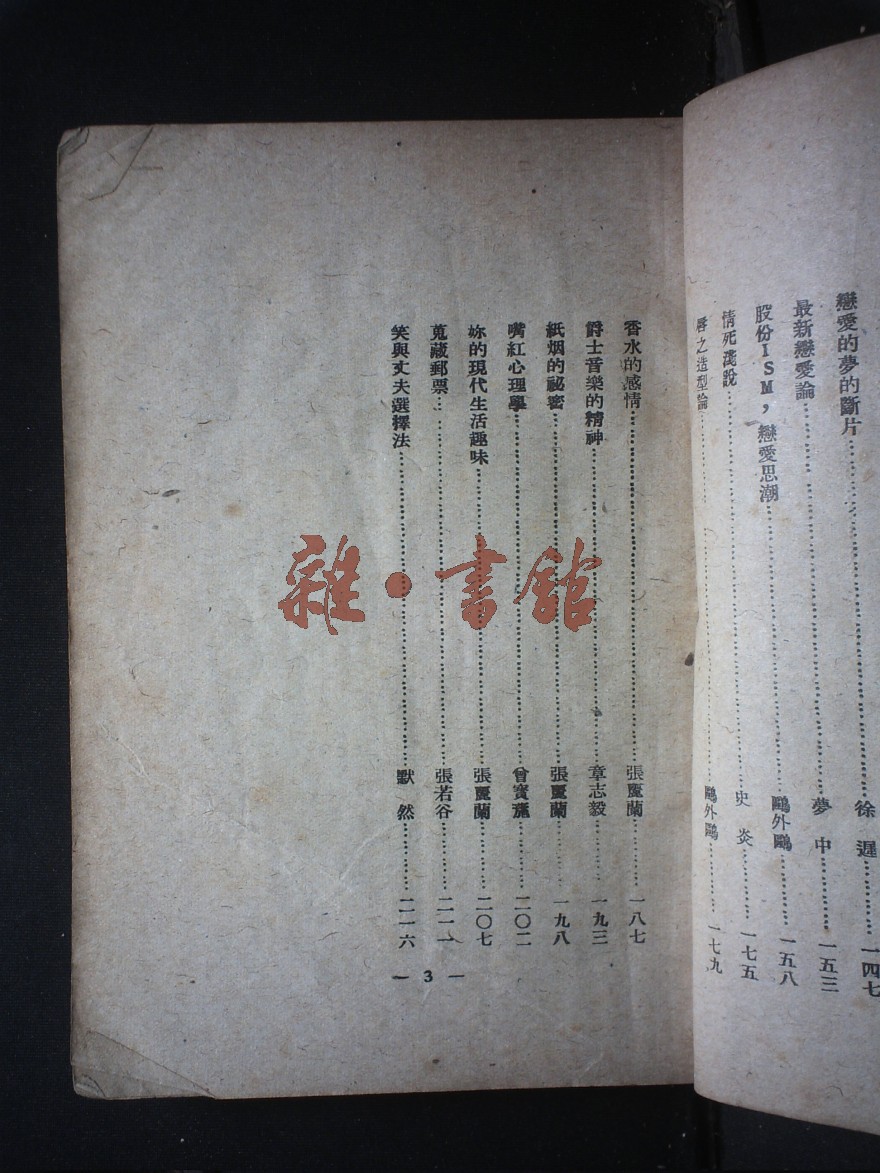 戀愛的夢的斷片……徐遲……一四七
最新戀愛論……夢中……一五三
股份ISM，戀愛思潮……鷗外鷗……一五八
情死淺說……史炎……一七五
唇之造型論……鷗外鷗……一七九
香水的感情……張麗蘭……一八七
爵士音樂的精神……章志毅……一九三
紙烟的祕密……張麗蘭……一九八
嘴紅心理學……曾寶蓀……二〇二
妳的現代生活趣味……張麗蘭……二〇七
蒐藏郵票……張若谷……二一一
笑與丈夫選擇法……默然……二一六
— 3 —
雜·書館